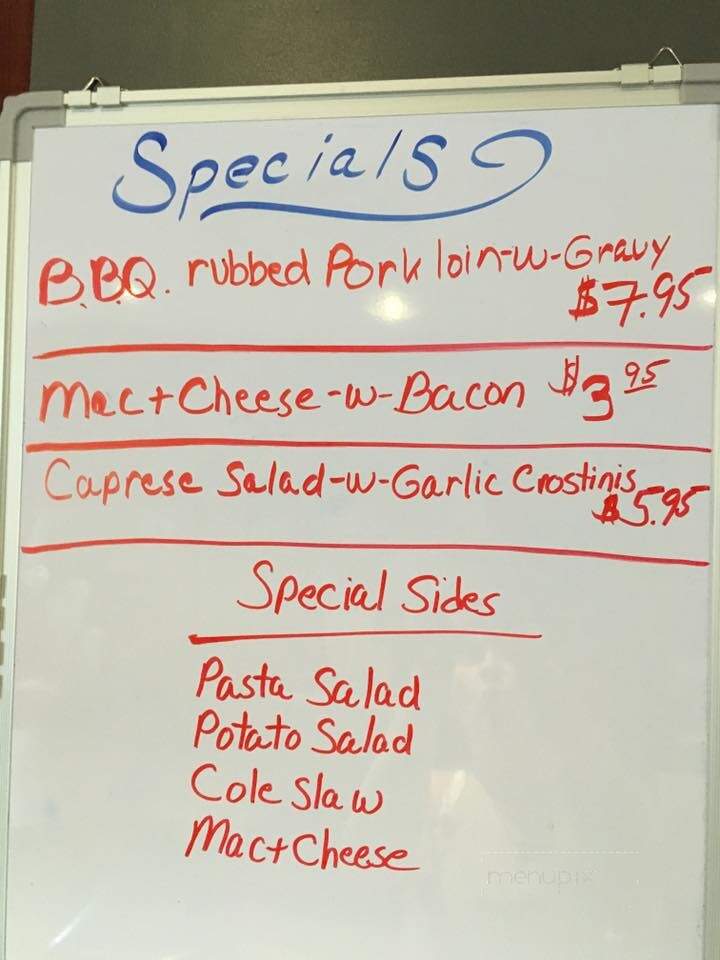 Specials
B.B.Q. rubbed Pork loin-w-Gravy
$7.95
Mac+Cheese-w-Bacon $3 95
Caprese Salad-w-Garlic Crostinis
$5.95
Special Sides
Pasta Salad
Potato Salad
Cole Slaw
Mac+Cheese
menupix